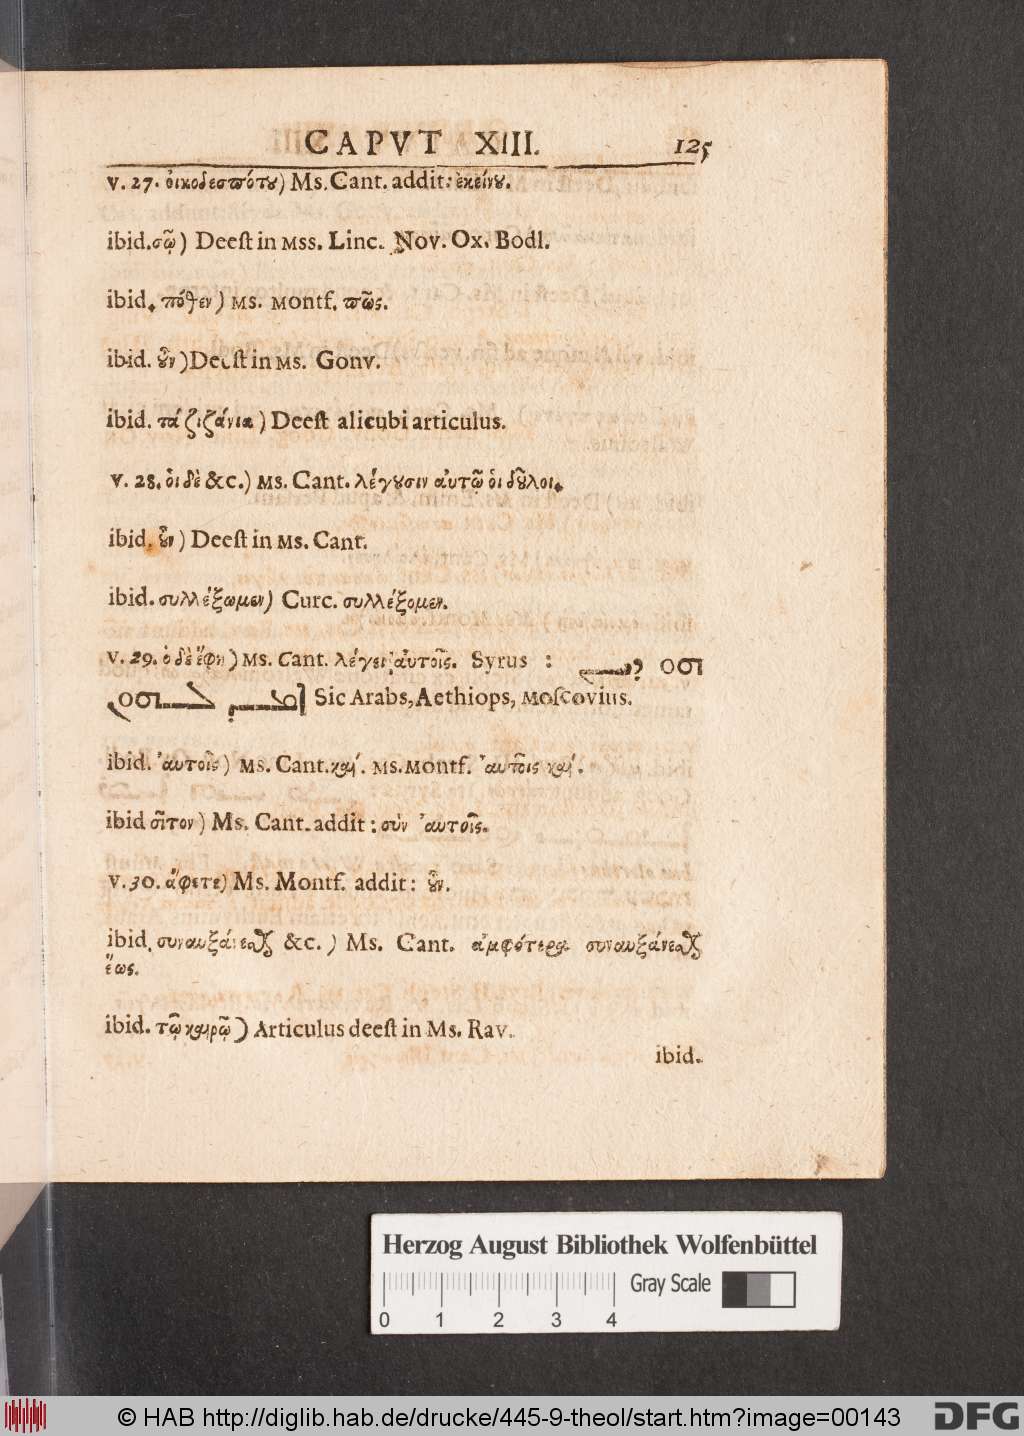 CAPVT XIII. 125
v. 27. ὀικοδεσπότȣ) Ms. Cant. addit: ἐκείνȣ.
ibid. σῷ) Deeſt in Mss. Linc. Nov. Ox. Bodl.
ibid. πόθεν) Ms. Montf. πῶς.
ibid. ȣ̓͂ν) Deeſt in Ms. Gonv.
ibid. τά ζιζάνια) Deeſt alicubi articulus.
v. 28. ὁι δὲ &c.) Ms. Cant. λέγȣσιν ἀυτῷ ὁι δȣ͂λοι.
ibid. ȣ̓͂ν) Deeſt in Ms. Cant.
ibid. συλλέξωμεν) Curc. συλλέξομεν.
v. 29. ὁ δὲ ἔφη) Ms. Cant. λέγει ἀυτοῖς. Syrus :
Sic Arabs, Aethiops, Moſcovius.
ibid. ἀυτοῖς) Ms. Cant. καί. Ms. Montf. ἀυτοῖς καί.
ibid σῖτον) Ms. Cant. addit : σὺν ἀυτοῖς.
v. 30. ἄφετε) Ms. Montf. addit : ȣ̓͂ν.
ibid. συναυξάνεσθαι &c.) Ms. Cant. ἀμφότερα συναυξάνεσθαι
ἕως.
ibid. τῷ καιρῷ) Articulus deeſt in Ms. Rav.
ibid.
Herzog August Bibliothek Wolfenbüttel
Gray Scale
0 1 2 3 4
© HAB http://diglib.hab.de/drucke/445-9-theol/start.htm?image=00143 DFG